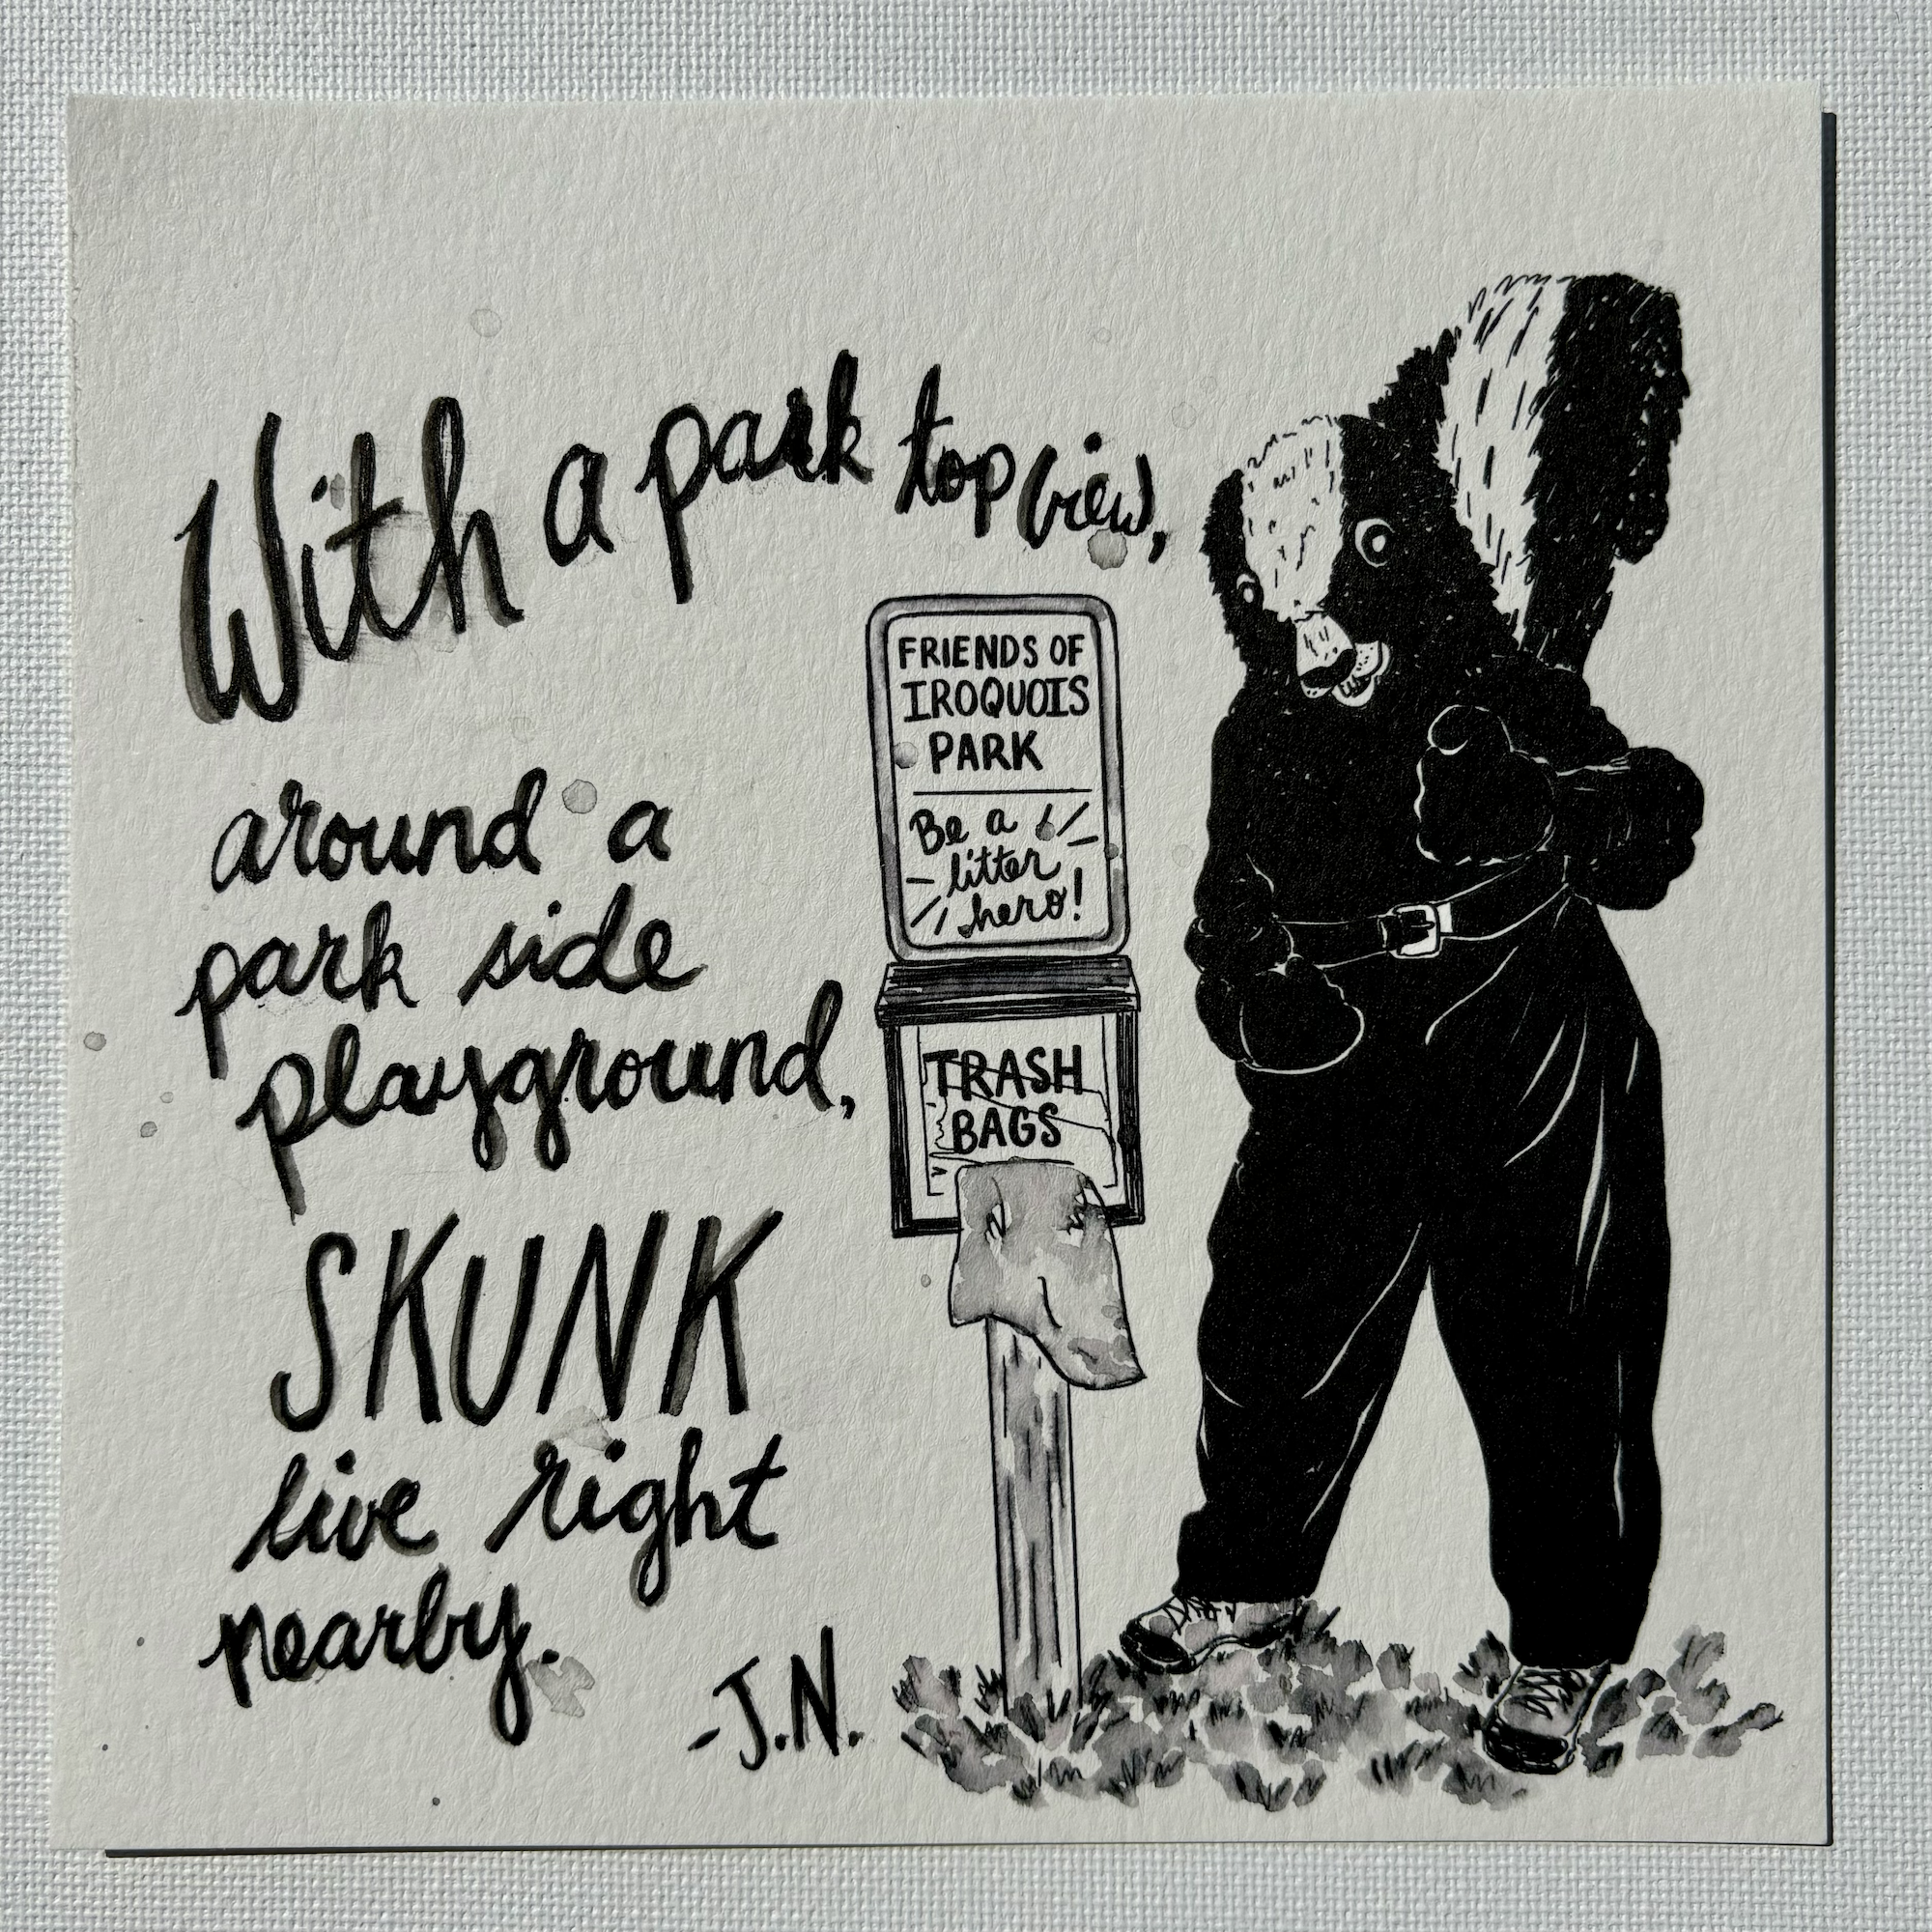 With a park top view,
around a
park side
playground,
SKUNK
live right
nearby.
-J.N.
FRIENDS OF
IROQUOIS
PARK
Be a
litter
hero!
TRASH
BAGS